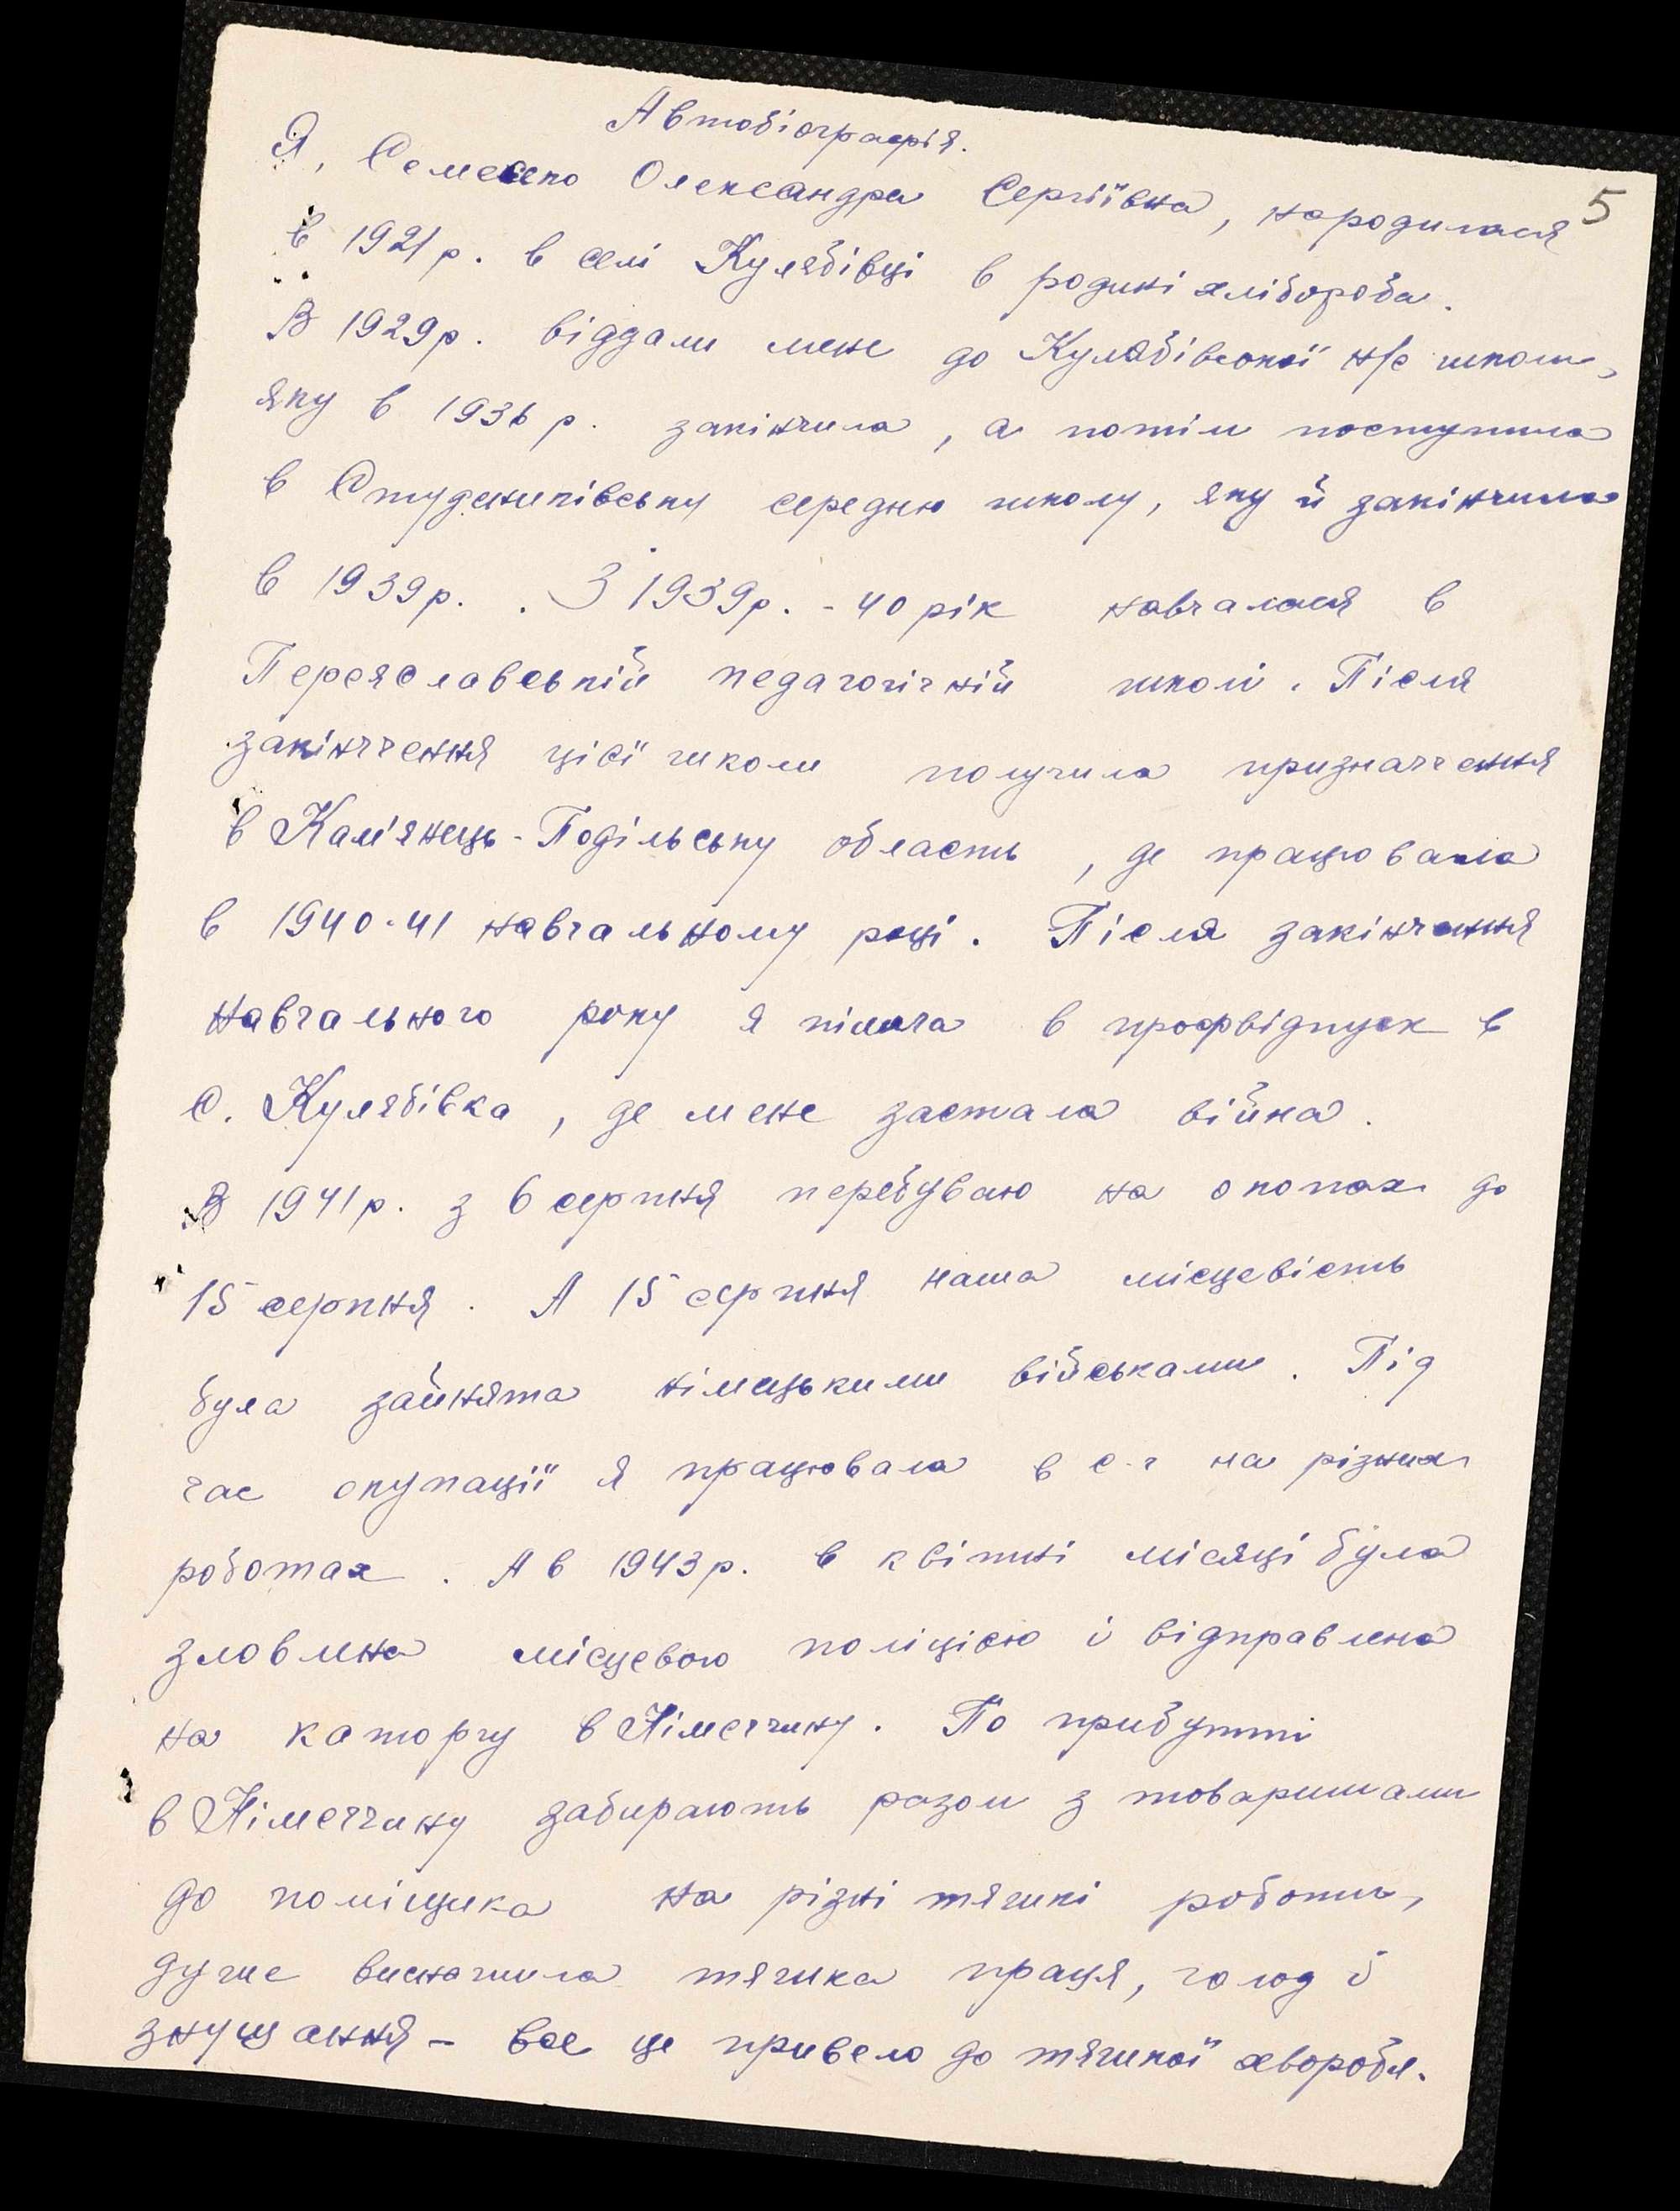 Автобіографія.
5
Я, Семесепо Олександра Сергіївна, народилася
в 1921 р. в селі Кулябівці в родині хлібороба.
В 1929 р. віддали мене до Кулябівської н/с школи,
яку в 1936 р. закінчила, а потім поступила
в Студениківську середню школу, яку й закінчила
в 1939 р. . З 1939 р. - 40 рік навчалася в
Переяславській педагогічній школі. Після
закінчення цієї школи получила призначення
в Кам'янець-Подільську область, де працювала
в 1940-41 навчальному році. Після закінчення
навчального року я пішла в профвідпуск в
с. Кулябівка, де мене застала війна.
В 1941 р. з 6 серпня перебуваю на окопах до
15 серпня. А 15 серпня наша місцевість
була зайнята німецькими військами. Під
час окупації я працювала в с-г на різних
роботах. А в 1943 р. в квітні місяці була
зловлена місцевою поліцією і відправлена
на каторгу в Німеччину. По прибутті
в Німеччину забирають разом з товаришами
до поміщика на різні тяжкі роботи,
дуже виснажила тяжка праця, голод і
знущання – все це привело до тяжкої хвороби.